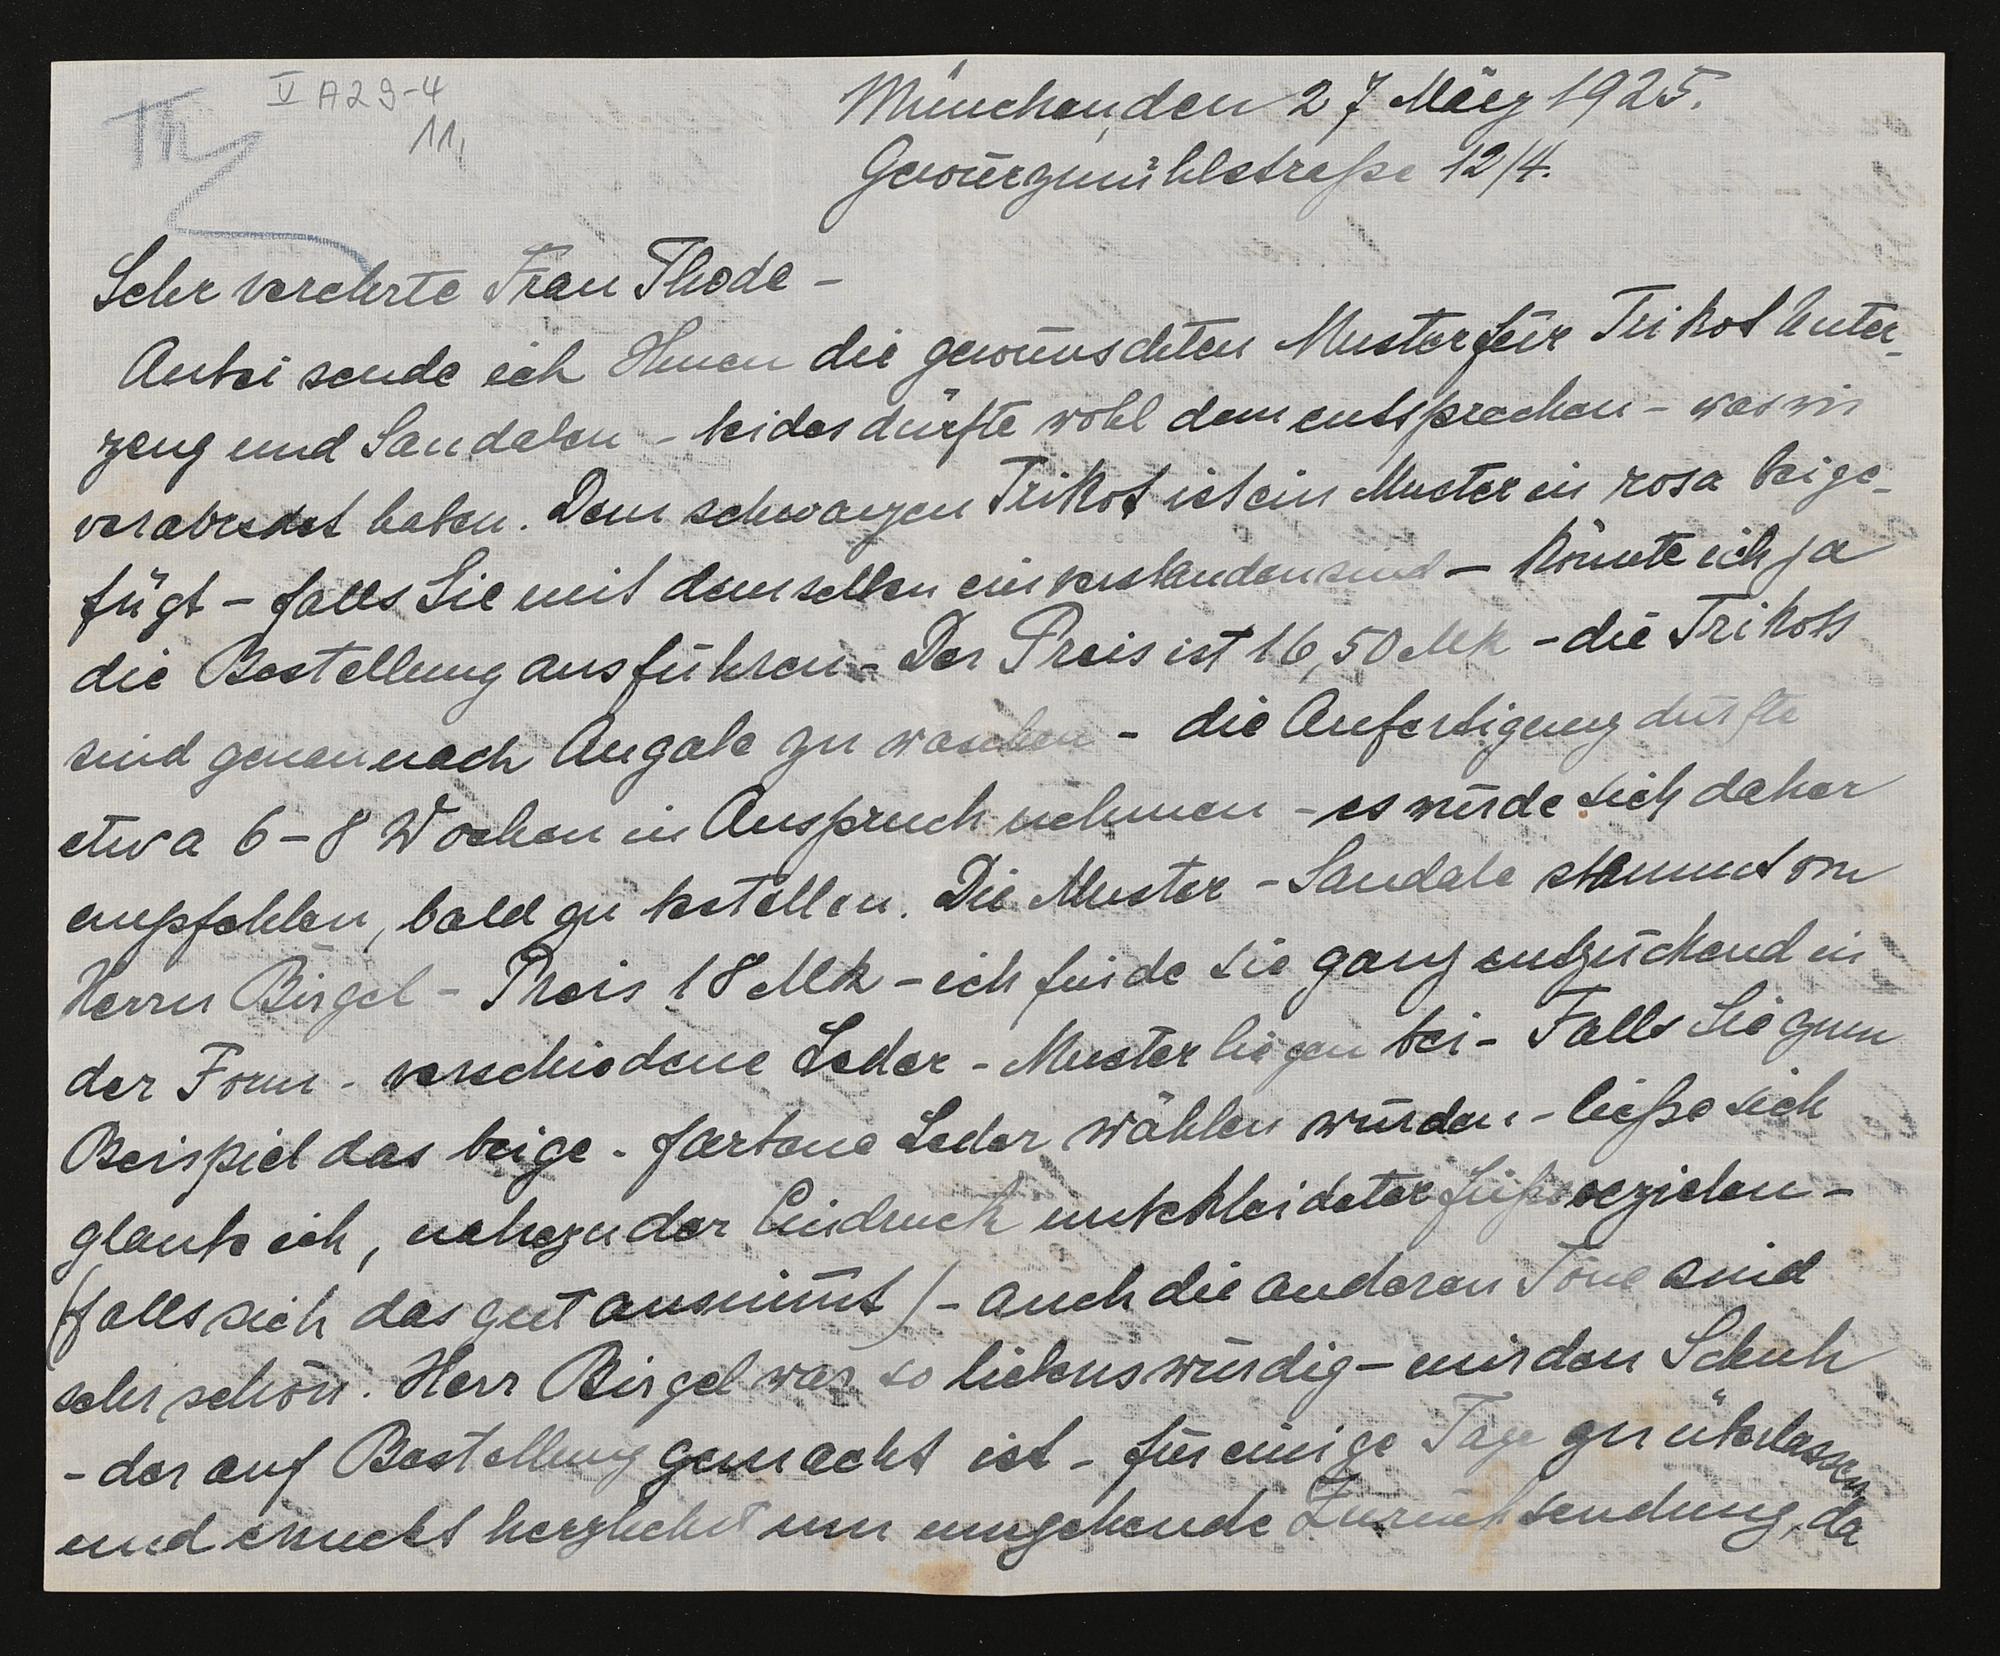 V A29-4
11,
Th
München, den 27 März 1925.
Gewürzmühlstraße 12/4.
Sehr verehrte Frau Thode –
Anbei sende ich Ihnen die gewünschten Muster für Trikot Unter-
zeug und Sandalen – beides dürfte wohl dem entsprechen – was wir
verabredet haben. Dem schwarzen Trikot ist ein Muster in rosa beige-
fügt – falls Sie mit demselben einverstanden sind – könnte ich ja
die Bestellung ausführen – Der Preis ist 16,50 Mk – die Trikots
sind genau nach Angabe zu waschen – die Anfertigung dürfte
etwa 6–8 Wochen in Anspruch nehmen – es würde sich daher
empfehlen, bald zu bestellen. Die Muster – Sandale stammt von
Herrn Birgel – Preis 18 Mk – ich finde sie ganz entzückend in
der Form – verschiedene Leder – Muster liegen bei – Falls Sie zum
Beispiel das beige – farbene Leder wählen würden – ließe sich
glaube ich, nahezu der Eindruck unbekleideter Füße erzielen –
(falls sich das gut ausnimmt) – auch die anderen Töne sind
sehr schön. Herr Birgel war so liebenswürdig – mir den Schuh
– der auf Bestellung gemacht ist – für einige Tage zu überlassen
und ersucht herzlichst um umgehende Zurücksendung, da